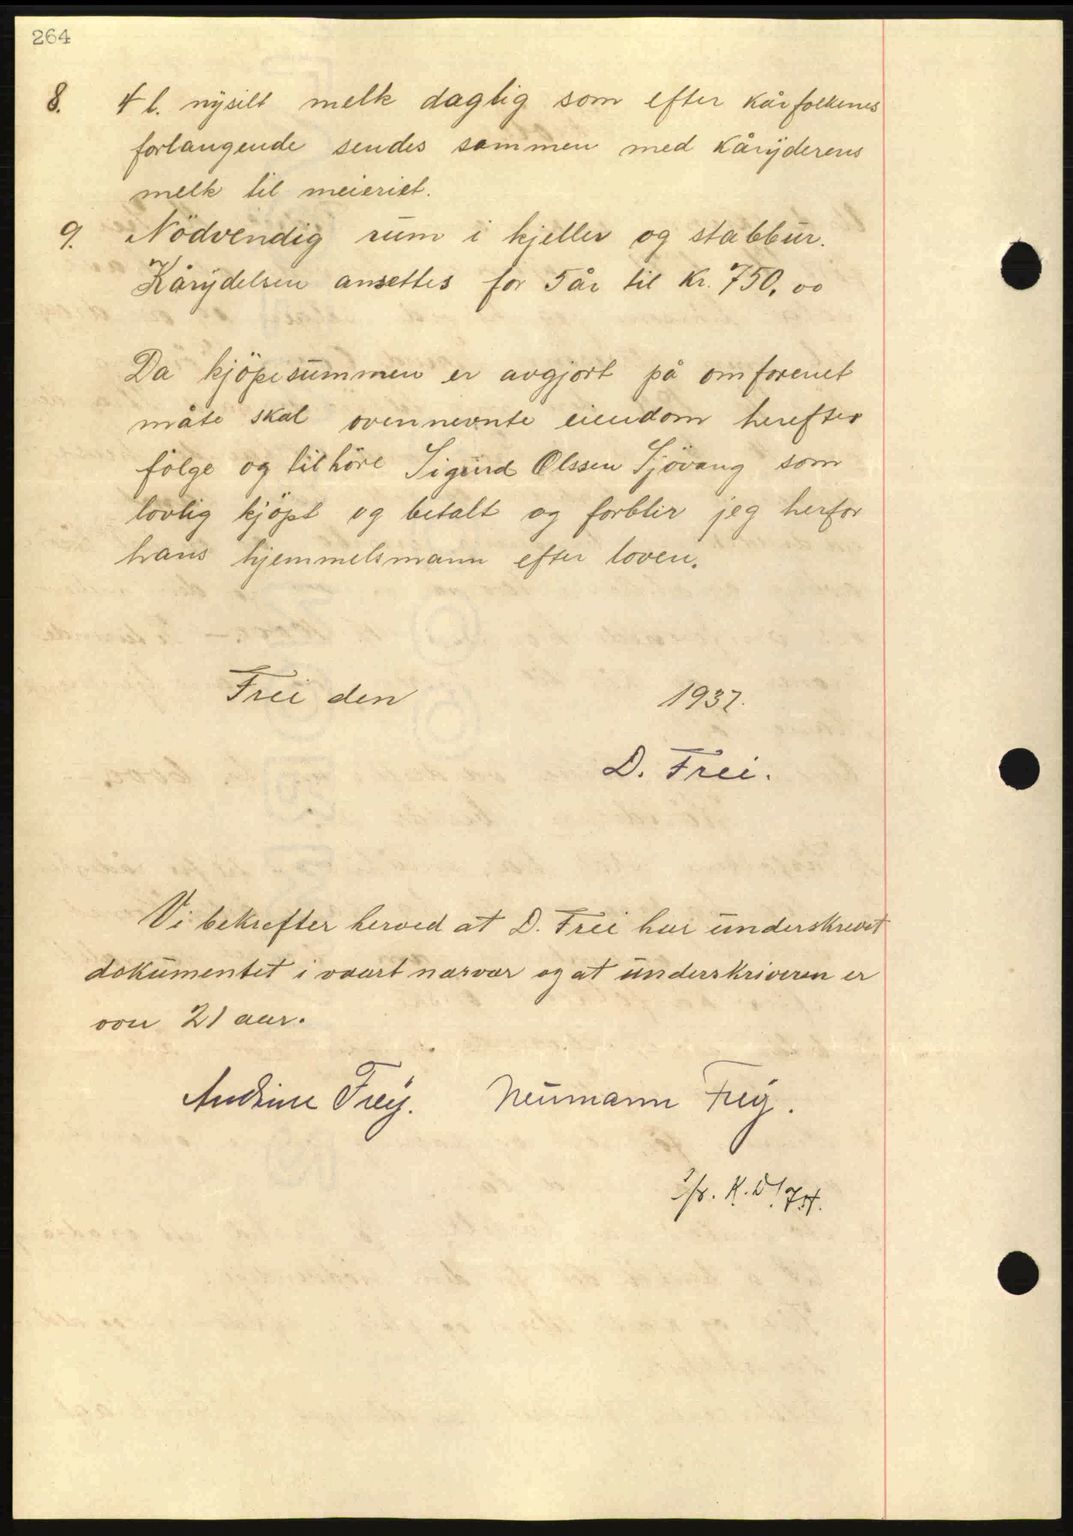 264
8. 4 l. nysilt melk daglig som efter kårfolkenes
forlangende sendes sammen med kåryderens
melk til meieriet.
9. Nödvendig rum i kjeller og stabbur.
Kårydelsen ansettes for 5 år til kr. 750,00
Da kjöpesummen er avgjort på omforenet
måte skal ovennevnte eiendom herefter
fölge og tilhöre Sigurd Olssen Sjövang som
lovlig kjöpt og betalt og forblir jeg herfor
hans hjemmelsmann efter loven.
Frei den 1937.
D. Frei.
Vi bekrefter herved at D. Frei har underskrevet
dokumentet i vaart nærvær og at underskriveren er
over 21 aar.
Andrine Frey. Neumann Frey.